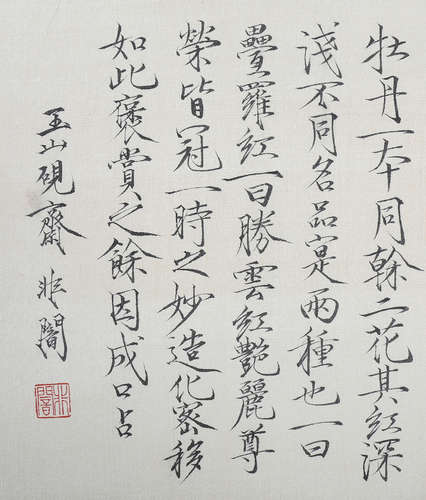 牡丹一本同榦二花其红深
浅不同名品寔两種也一曰
疊羅紅一曰勝雲紅艷麗尊
榮皆冠一時之妙造化密移
如此褒賞之餘因成口占
玉山硯齋非闇
非闇